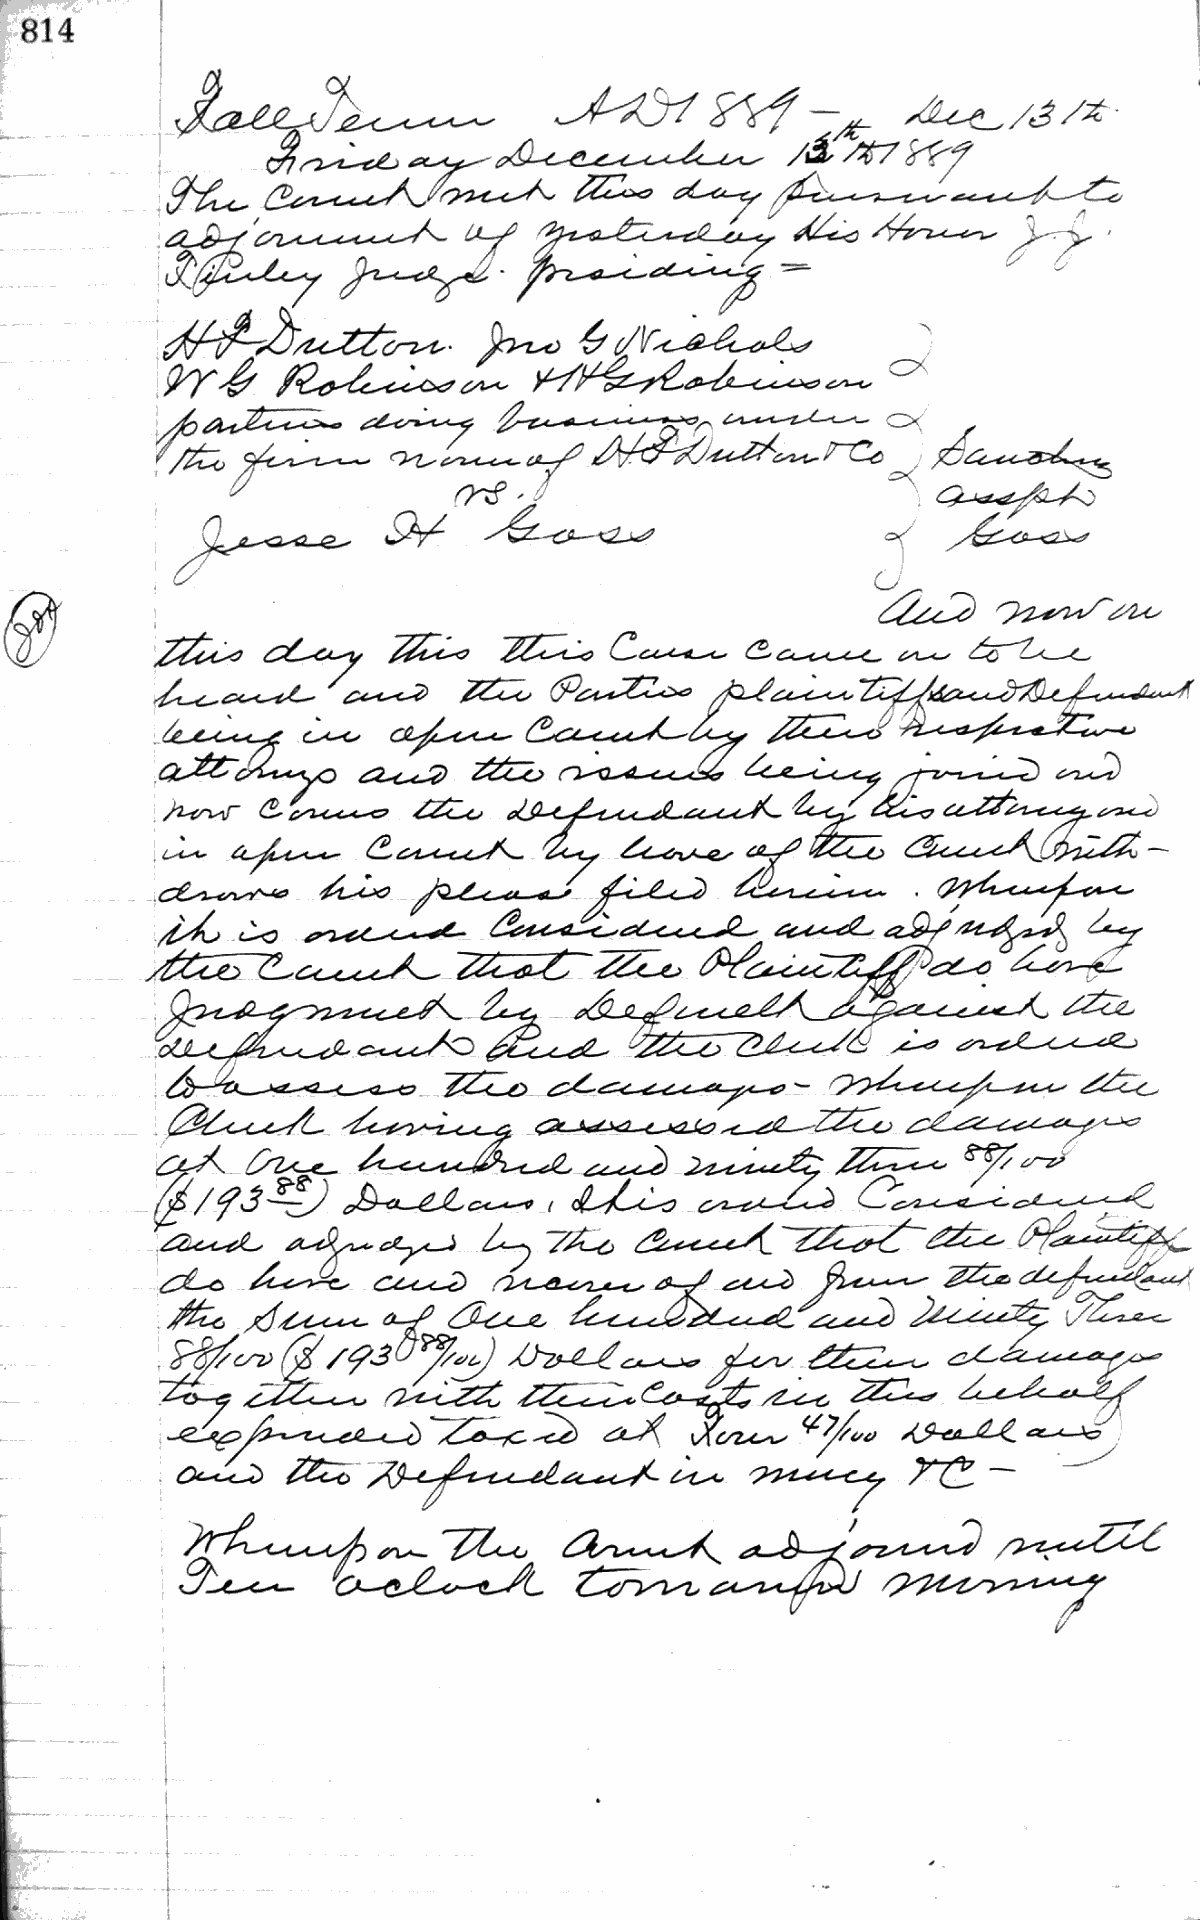 814
Fall Term AD 1889 - Dec 13th
Friday December 13th AD 1889
The Court met this day pursuant to
adjournment of yesterday His Honor J. J.
Finley Judge. presiding =
H F Dutton. Jno G Nichols
W G Robinson & H G Robinson
parties doing business under
the firm name of H F Dutton & Co
vs.
Jesse H Goss
Damages
asspt
Goss
And now on
this day this this Cause came on to be
heard and the Parties plaintiffs and Defendant
being in open Court by their respective
attorneys and the issues being joined and
now comes the Defendant by his attorney and
in open Court by leave of the Court with-
draws his pleas filed herein. Whereupon
it is ordered Considered and adjudged by
the Court that the Plaintiff do have
Judgment by Default against the
Defendant and the Clerk is ordered
to assess the damages - Whereupon the
Clerk having assessed the damages
at One hundred and ninety three 88/100
($193 88) Dollars, It is ordered Considered
and adjudged by the Court that the Plaintiff
do have and recover of and from the defendant
the Sum of One hundred and Ninety Three
88/100 ($193 88/100) Dollars for their damages
together with their Costs in this behalf
expended taxed at Four 47/100 Dollars
and the Defendant in mercy &C -
Whereupon the Court adjourned until
Ten oclock tomorrow morning